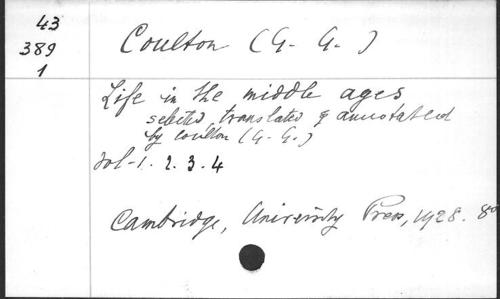 43
389
1
Coulton (G. G.)
Life in the middle ages
selected, translated & annotated
by Coulton (G. G.)
Vol-1. 2. 3. 4
Cambridge, University Press, 1928. 8º